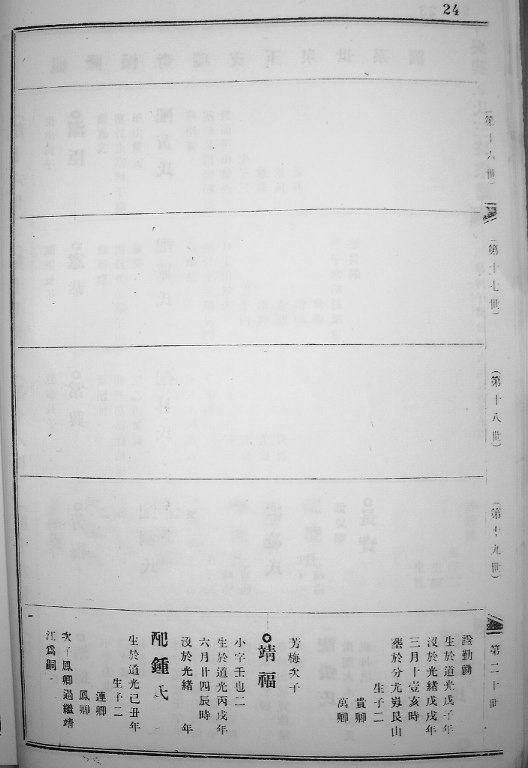 24
(第十六世)
(第十七世)
(第十八世)
(第十九世)
第二十世
諡勤勳
生於道光戊子年
沒於光緒戊戌年
三月十壹亥時
塟於分尤崀艮山
生子二
貴卿
萬卿
芳梅次子
靖福
小字壬也二
生於道光丙戌年
六月廿四辰時
沒於光緒 年
配鍾氏
生於道光己丑年
生子二
連卿
鳳卿
次子鳳卿過繼靖
江爲嗣